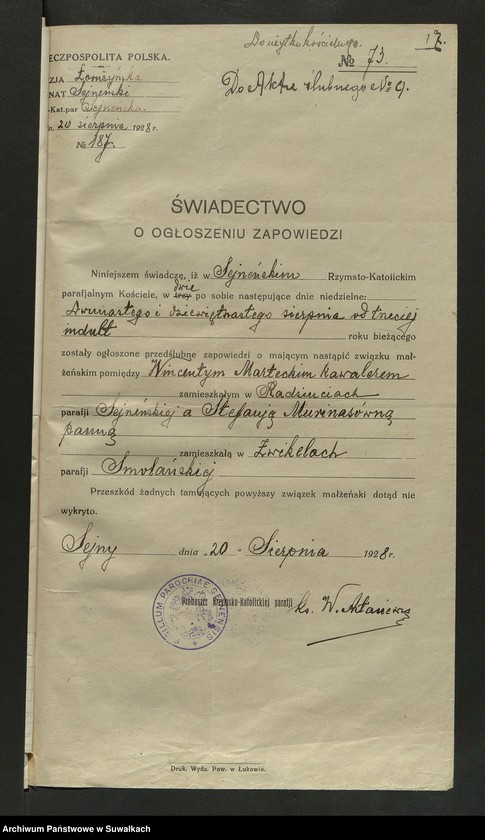 Do użytku kościelnego.
17.
ECZPOSPOLITA POLSKA.
№ 73.
ZJA Łomżyńska
Do Aktu ślubnego № 9.
NAT Sejneński
-Kat.par Sejneńska
n. 20 sierpnia 1928 r.
№ 187.
ŚWIADECTWO
O OGŁOSZENIU ZAPOWIEDZI
Niniejszem świadczę, iż w Sejneńskim Rzymsto-Katolickim
dwie
parafjalnym Kościele, w trzy po sobie następujące dnie niedzielne:
dwunastego i dziewiętnastego sierpnia od trzeciej
indult roku bieżącego
zostały ogłoszone przedślubne zapowiedzi o mającym nastąpić związku mał-
żeńskim pomiędzy Wincentym Marteckim kawalerem
zamieszkałym w Radziuciach
parafji Sejneńskiej a Stefanją Murinasówną
panną
zamieszkałą w Żwikelach
parafji Smolańskiej
Przeszkód żadnych tamujących powyższy związek małżeński dotąd nie
wykryto.
Sejny dnia "20" Sierpnia 1928 r.
SIGILLUM PAROCHIAE SEJNENSIS
Proboszcz Rzymsko-Katolickiej parafji ks. W.
Druk. Wydz. Pow. w Łukowie.
Archiwum Państwowe w Suwałkach